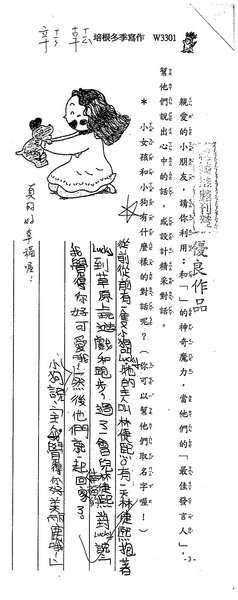 培根冬季寫作 W3301
親愛的小朋友，請你利用：和「」的神奇魔力，當他們的「最佳發言人」，
幫他們說出心中的話，或設計精采對話。
＊小女孩和小狗有什麼樣的對話呢？（你可以幫他們取名字喔！）
優良作品
從前從前有一隻小狗，牠的主人叫林倢熙。有一天林倢熙抱著
Lucky到草原上玩遊戲和跑步，過了一會兒林倢熙對Lucky說：「
我覺得你好可愛哦！」然後他們就一起回家了。
小狗說：「主人我覺得你好美麗哦！」
真的好幸福喔！
-3-